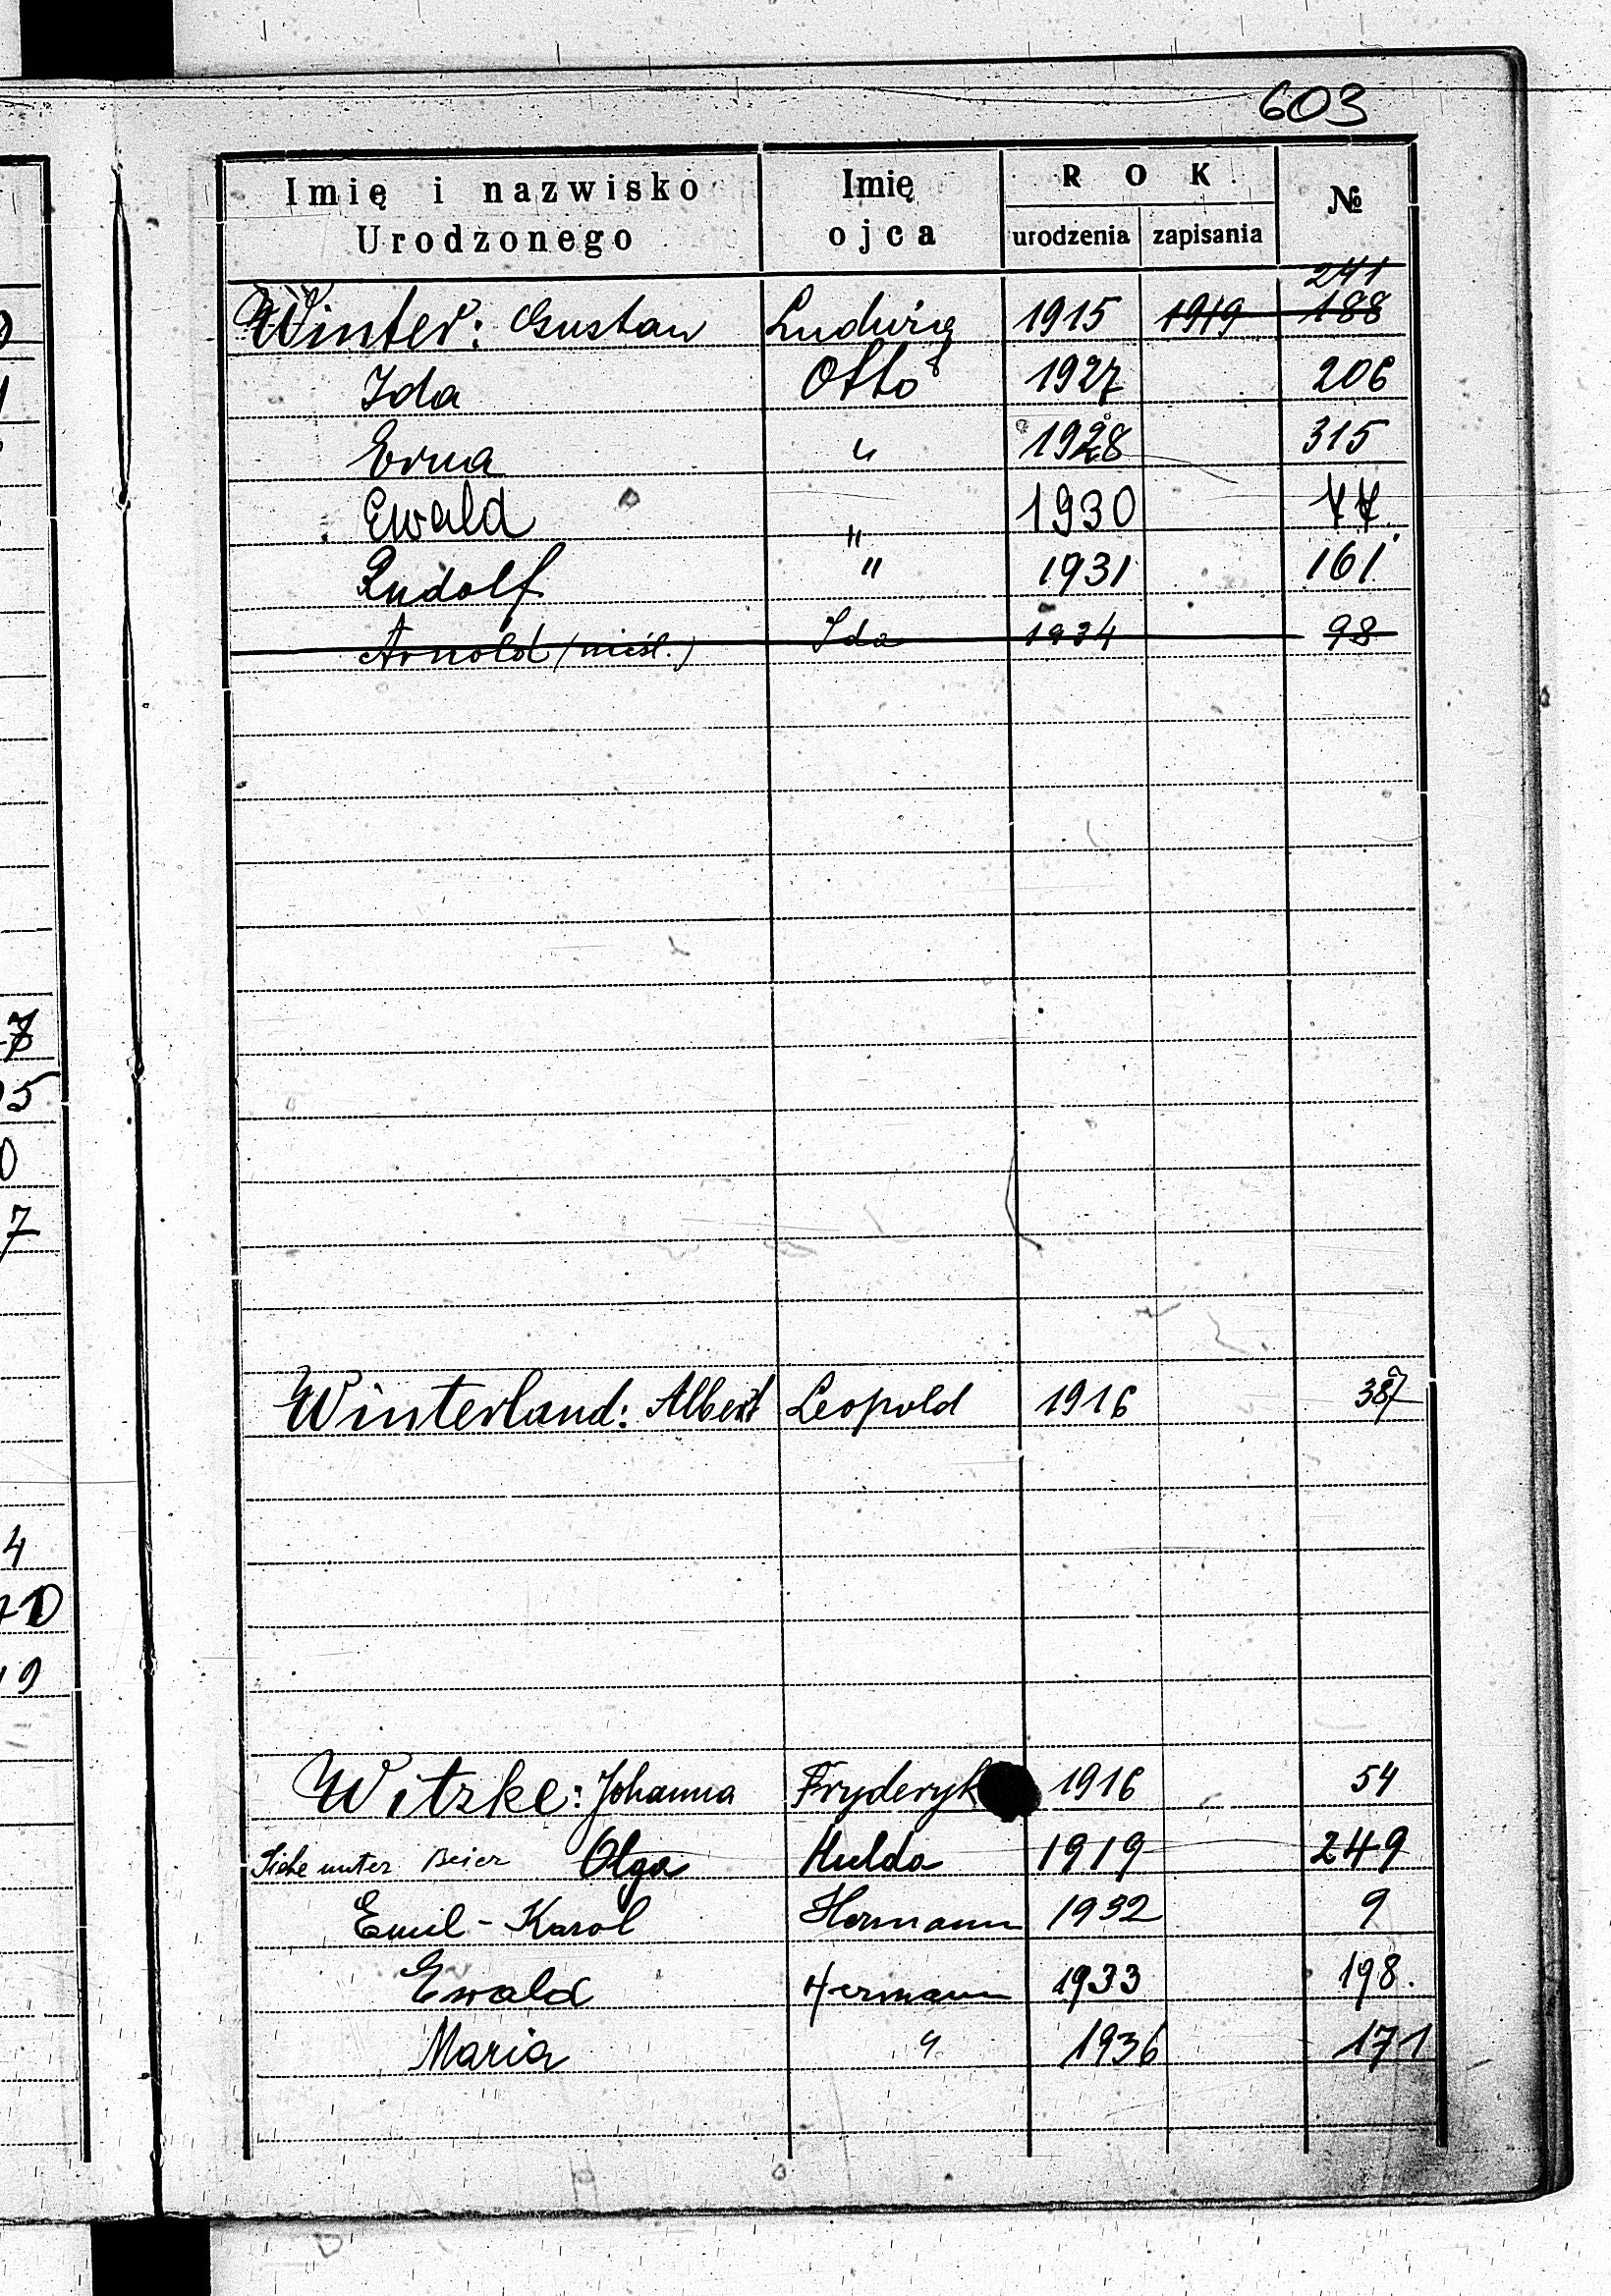 603
Imię i nazwisko Urodzonego Imię ojca ROK urodzenia zapisania №
241
Winter: Gustaw Ludwig 1915 1919 188
Ida Otto 1927 206
Erna " 1928 315
Ewald " 1930 77.
Rudolf " 1931 161
Arnold (nieśl.) Ida 1934 98
Winterland: Albert Leopold 1916 387
Witzke: Johanna Fryderyk 1916 54
Siehe unter Beier Olga Hulda 1919 249
Emil - Karol Hermann 1932 9
Ewald Hermann 1933 198.
Maria " 1936 171